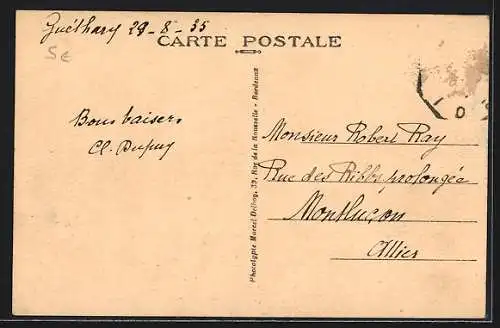 Guéthary 29-8-35
CARTE POSTALE
5€
Bons baisers
Cl. Dupuy
Phototypie Marcel Delboy, 33, Rue de la Rousselle - Bordeaux
Monsieur Robert Ray
Rue des Ribbs prolongée
Montluçon
Allier